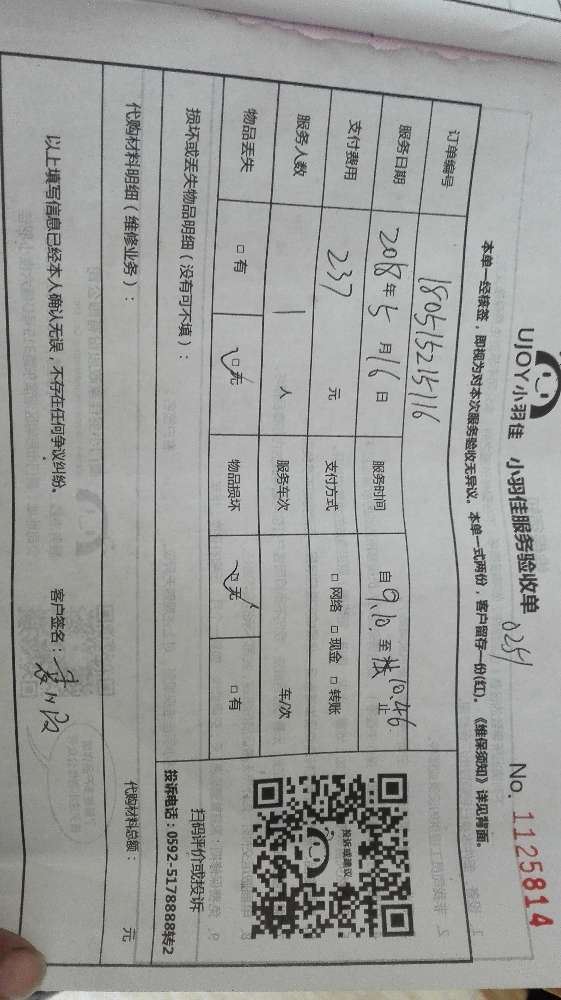 UJOY小羽佳 小羽佳服务验收单 0251 No. 1125814
本单一经核签，即视为对本次服务验收无异议。本单一式两份，客户留存一份(红)。《维保须知》详见背面。
订单编号 180515215116
服务日期 2018年5月16日 服务时间 自9.10.至10.46止
支付费用 237元 支付方式 □ 网络 □ 现金 □ 转账
服务人数 1人 服务车次 车/次
物品丢失 □ 有 □ 无 物品损坏 □ 无 □ 有
损坏或丢失物品明细（没有可不填）：
投诉或建议
扫码评价或投诉
投诉电话：0592-5178888转2
代购材料明细（维修业务）： 代购材料总额： 元
以上填写信息已经本人确认无误，不存在任何争议纠纷。 客户签名：